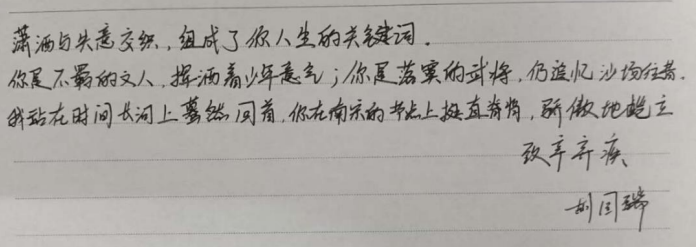 潇洒与失意交织，组成了你人生的关键词。
你是不羁的文人，挥洒着少年意气；你是落寞的武将，仍追忆沙场往昔。
我站在时间长河上蓦然回首，你在南宋的书卷上挺直脊背，骄傲地屹立
致辛弃疾